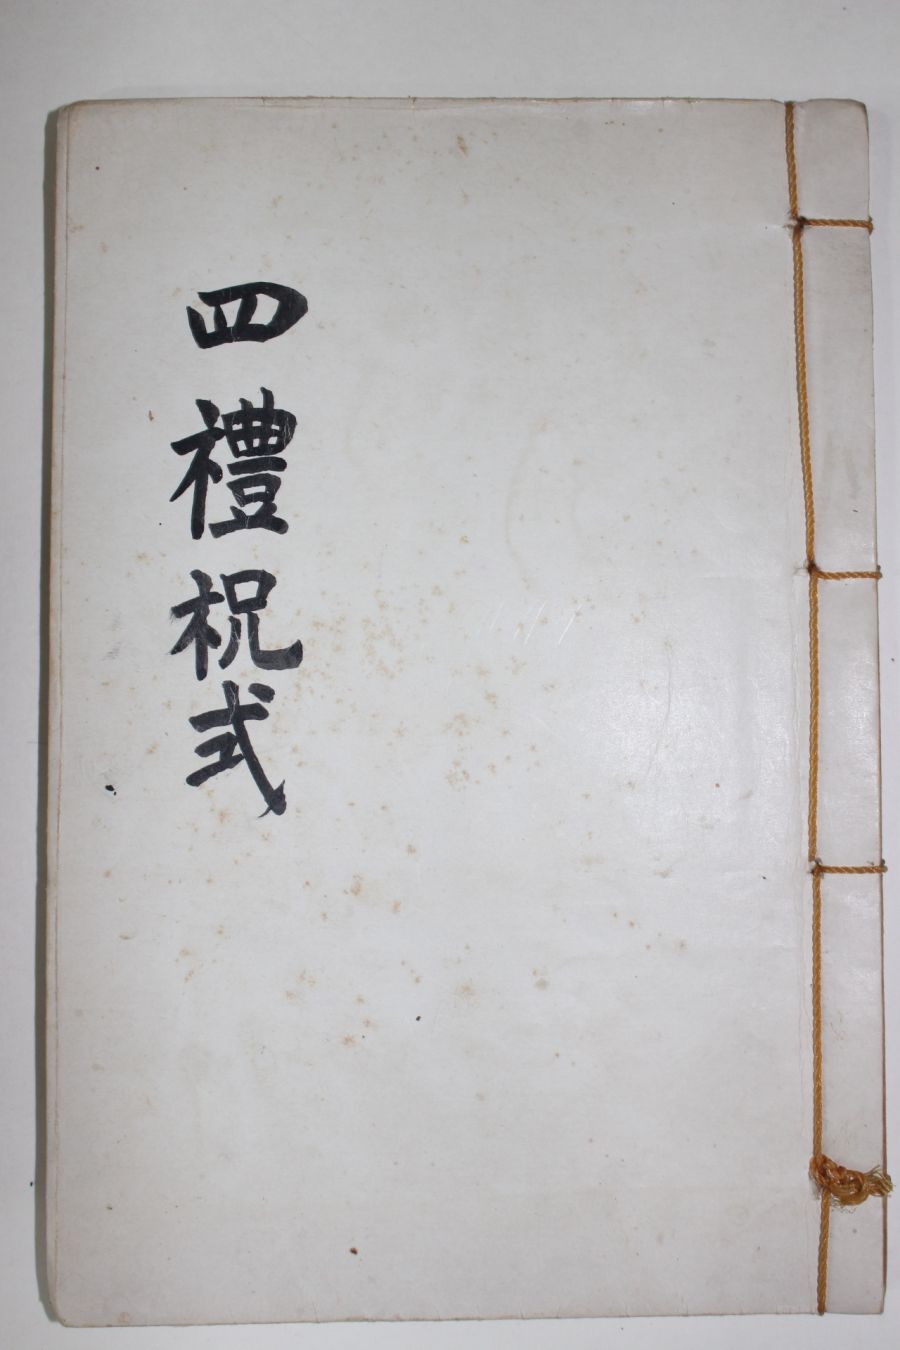 四禮祝式